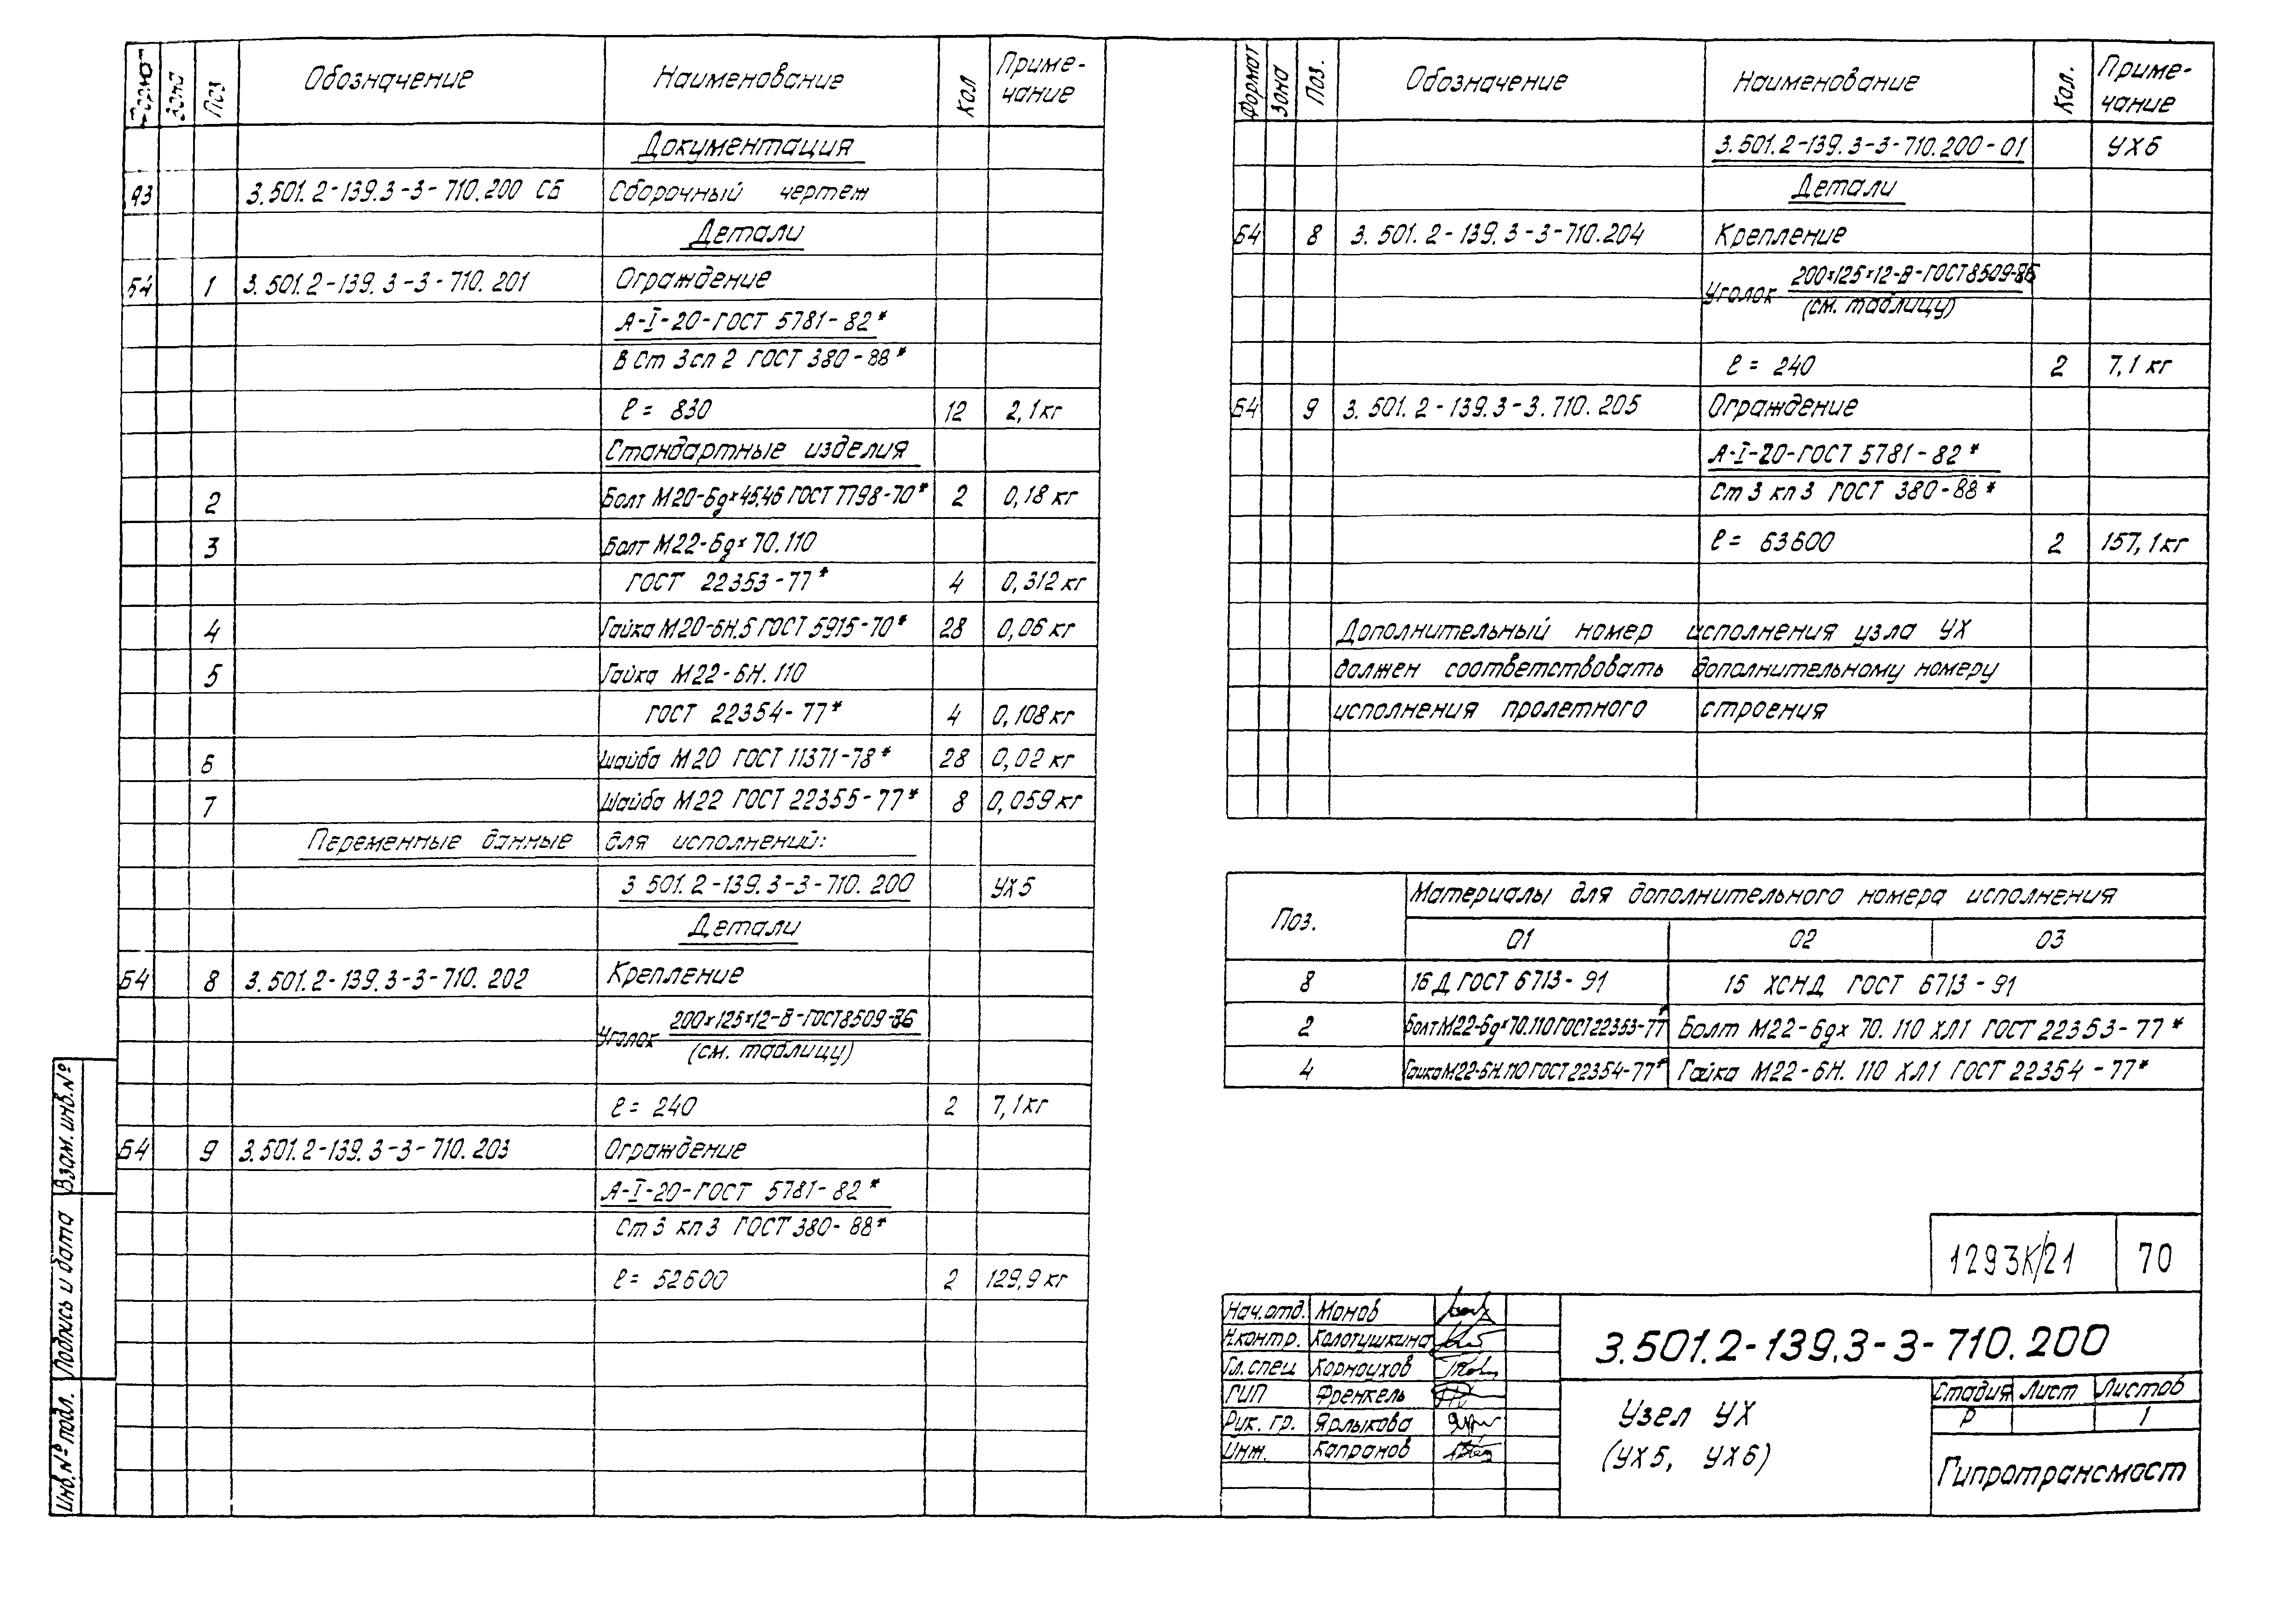 Формат Зона Поз Обозначение Наименование Кол Приме-
чание
Документация
А3 3.501.2-139.3-3-710.200 СБ Сборочный чертеж
Детали
Б4 1 3.501.2-139.3-3-710.201 Ограждение
А-I-20-ГОСТ 5781-82*
В Ст 3сп 2 ГОСТ 380-88*
ℓ = 830 12 2,1кг
Стандартные изделия
2 Болт М20-6gх45.46 ГОСТ 7798-70* 2 0,18 кг
3 Болт М22-6gх70.110
ГОСТ 22353-77* 4 0,312 кг
4 Гайка М20-6Н.5 ГОСТ 5915-70* 28 0,06 кг
5 Гайка М22-6Н.110
ГОСТ 22354-77* 4 0,108 кг
6 Шайба М20 ГОСТ 11371-78* 28 0,02 кг
7 Шайба М22 ГОСТ 22355-77* 8 0,059 кг
Переменные данные для исполнений:
3 501.2-139.3-3-710.200 УХ5
Детали
Б4 8 3.501.2-139.3-3-710.202 Крепление
Уголок 200х125х12-В-ГОСТ 8509-86
(см. таблицу)
ℓ = 240 2 7,1кг
Б4 9 3.501.2-139.3-3-710.203 Ограждение
А-I-20-ГОСТ 5781-82*
Ст 3 кп 3 ГОСТ 380-88*
ℓ = 52600 2 129,9 кг
Формат Зона Поз. Обозначение Наименование Кол. Приме-
чание
3.501.2-139.3-3-710.200-01 УХ6
Детали
Б4 8 3.501.2-139.3-3-710.204 Крепление
Уголок 200х125х12-В-ГОСТ 8509-86
(см. таблицу)
ℓ = 240 2 7,1 кг
Б4 9 3.501.2-139.3-3.710.205 Ограждение
А-I-20-ГОСТ 5781-82*
Ст 3 кп 3 ГОСТ 380-88*
ℓ = 63600 2 157,1кг
Дополнительный номер исполнения узла УХ
должен соответствовать дополнительному номеру
исполнения пролетного строения
Поз. Материалы для дополнительного номера исполнения
01 02 03
8 16Д ГОСТ 6713-91 15 ХСНД ГОСТ 6713-91
2 Болт М22-6gх70.110 ГОСТ 22353-77* Болт М22-6gх 70.110 ХЛ1 ГОСТ 22353-77*
4 Гайка М22-6Н.110 ГОСТ 22354-77* Гайка М22-6Н.110 ХЛ1 ГОСТ 22354-77*
1293К/21 70
Нач.отд. Монов
Н.контр. Колотушкина
Гл.спец Корноухов
ГИП Френкель
Рук. гр. Ярлыкова
Инж. Капранов
3.501.2-139.3-3-710.200
Узел УХ
(УХ5, УХ6)
Стадия Лист Листов
Р 1
Гипротрансмост
Взам.инв.№
Подпись и дата
Инв.№ подл.